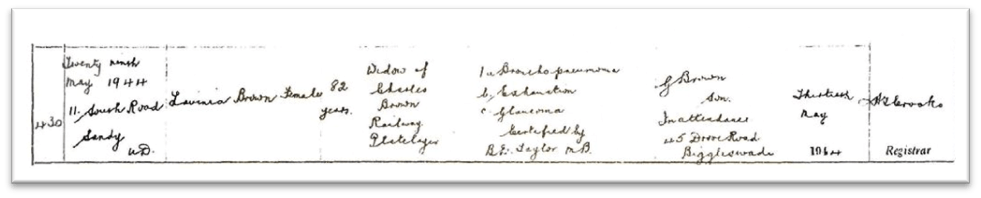 430
Twenty ninth
May 1944
11. South Road
Sandy
U.D.
Lavinia Brown
Female
82
years.
Widow of
Charles
Brown
Railway
Platelayer
1a Broncho pneumonia
b, Exhaustion
c Glaucoma
Certified by
B.E. Taylor M.B.
G Brown
Son.
In attendance
45 Drove Road
Biggleswade
Thirtieth
May
1944
Registrar